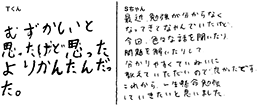 Tくん
むずかしいと
思ったけど思った
よりかんたんだっ
た。
Sちゃん
最近勉強が分からなく
なってきてなやんでいたけど、
今回、色々な話を聞いたり
問題を解いたりして
分かりやすくていねいに
教えていただいたので良かったです。
これから、一生懸命勉強
していきたいと思いました。